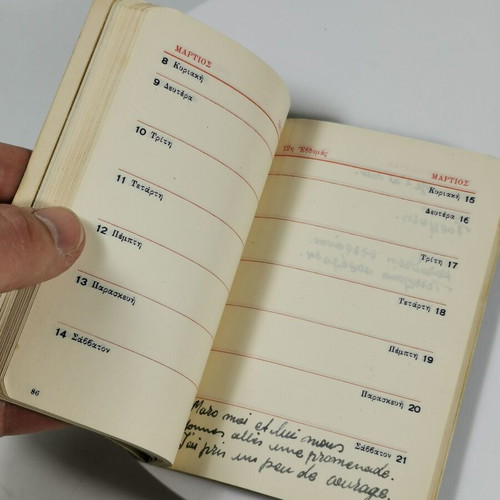 ΜΑΡΤΙΟΣ
8 Κυριακή
9 Δευτέρα
10 Τρίτη
11 Τετάρτη
12 Πέμπτη
13 Παρασκευή
14 Σάββατον
86
12η Ἑβδομάς
ΜΑΡΤΙΟΣ
Κυριακή 15
Δευτέρα 16
Τρίτη 17
Τετάρτη 18
Πέμπτη 19
Παρασκευή 20
Σάββατον 21
moi et lui nous
allés une promenade.
J'ai pris un peu de courage.